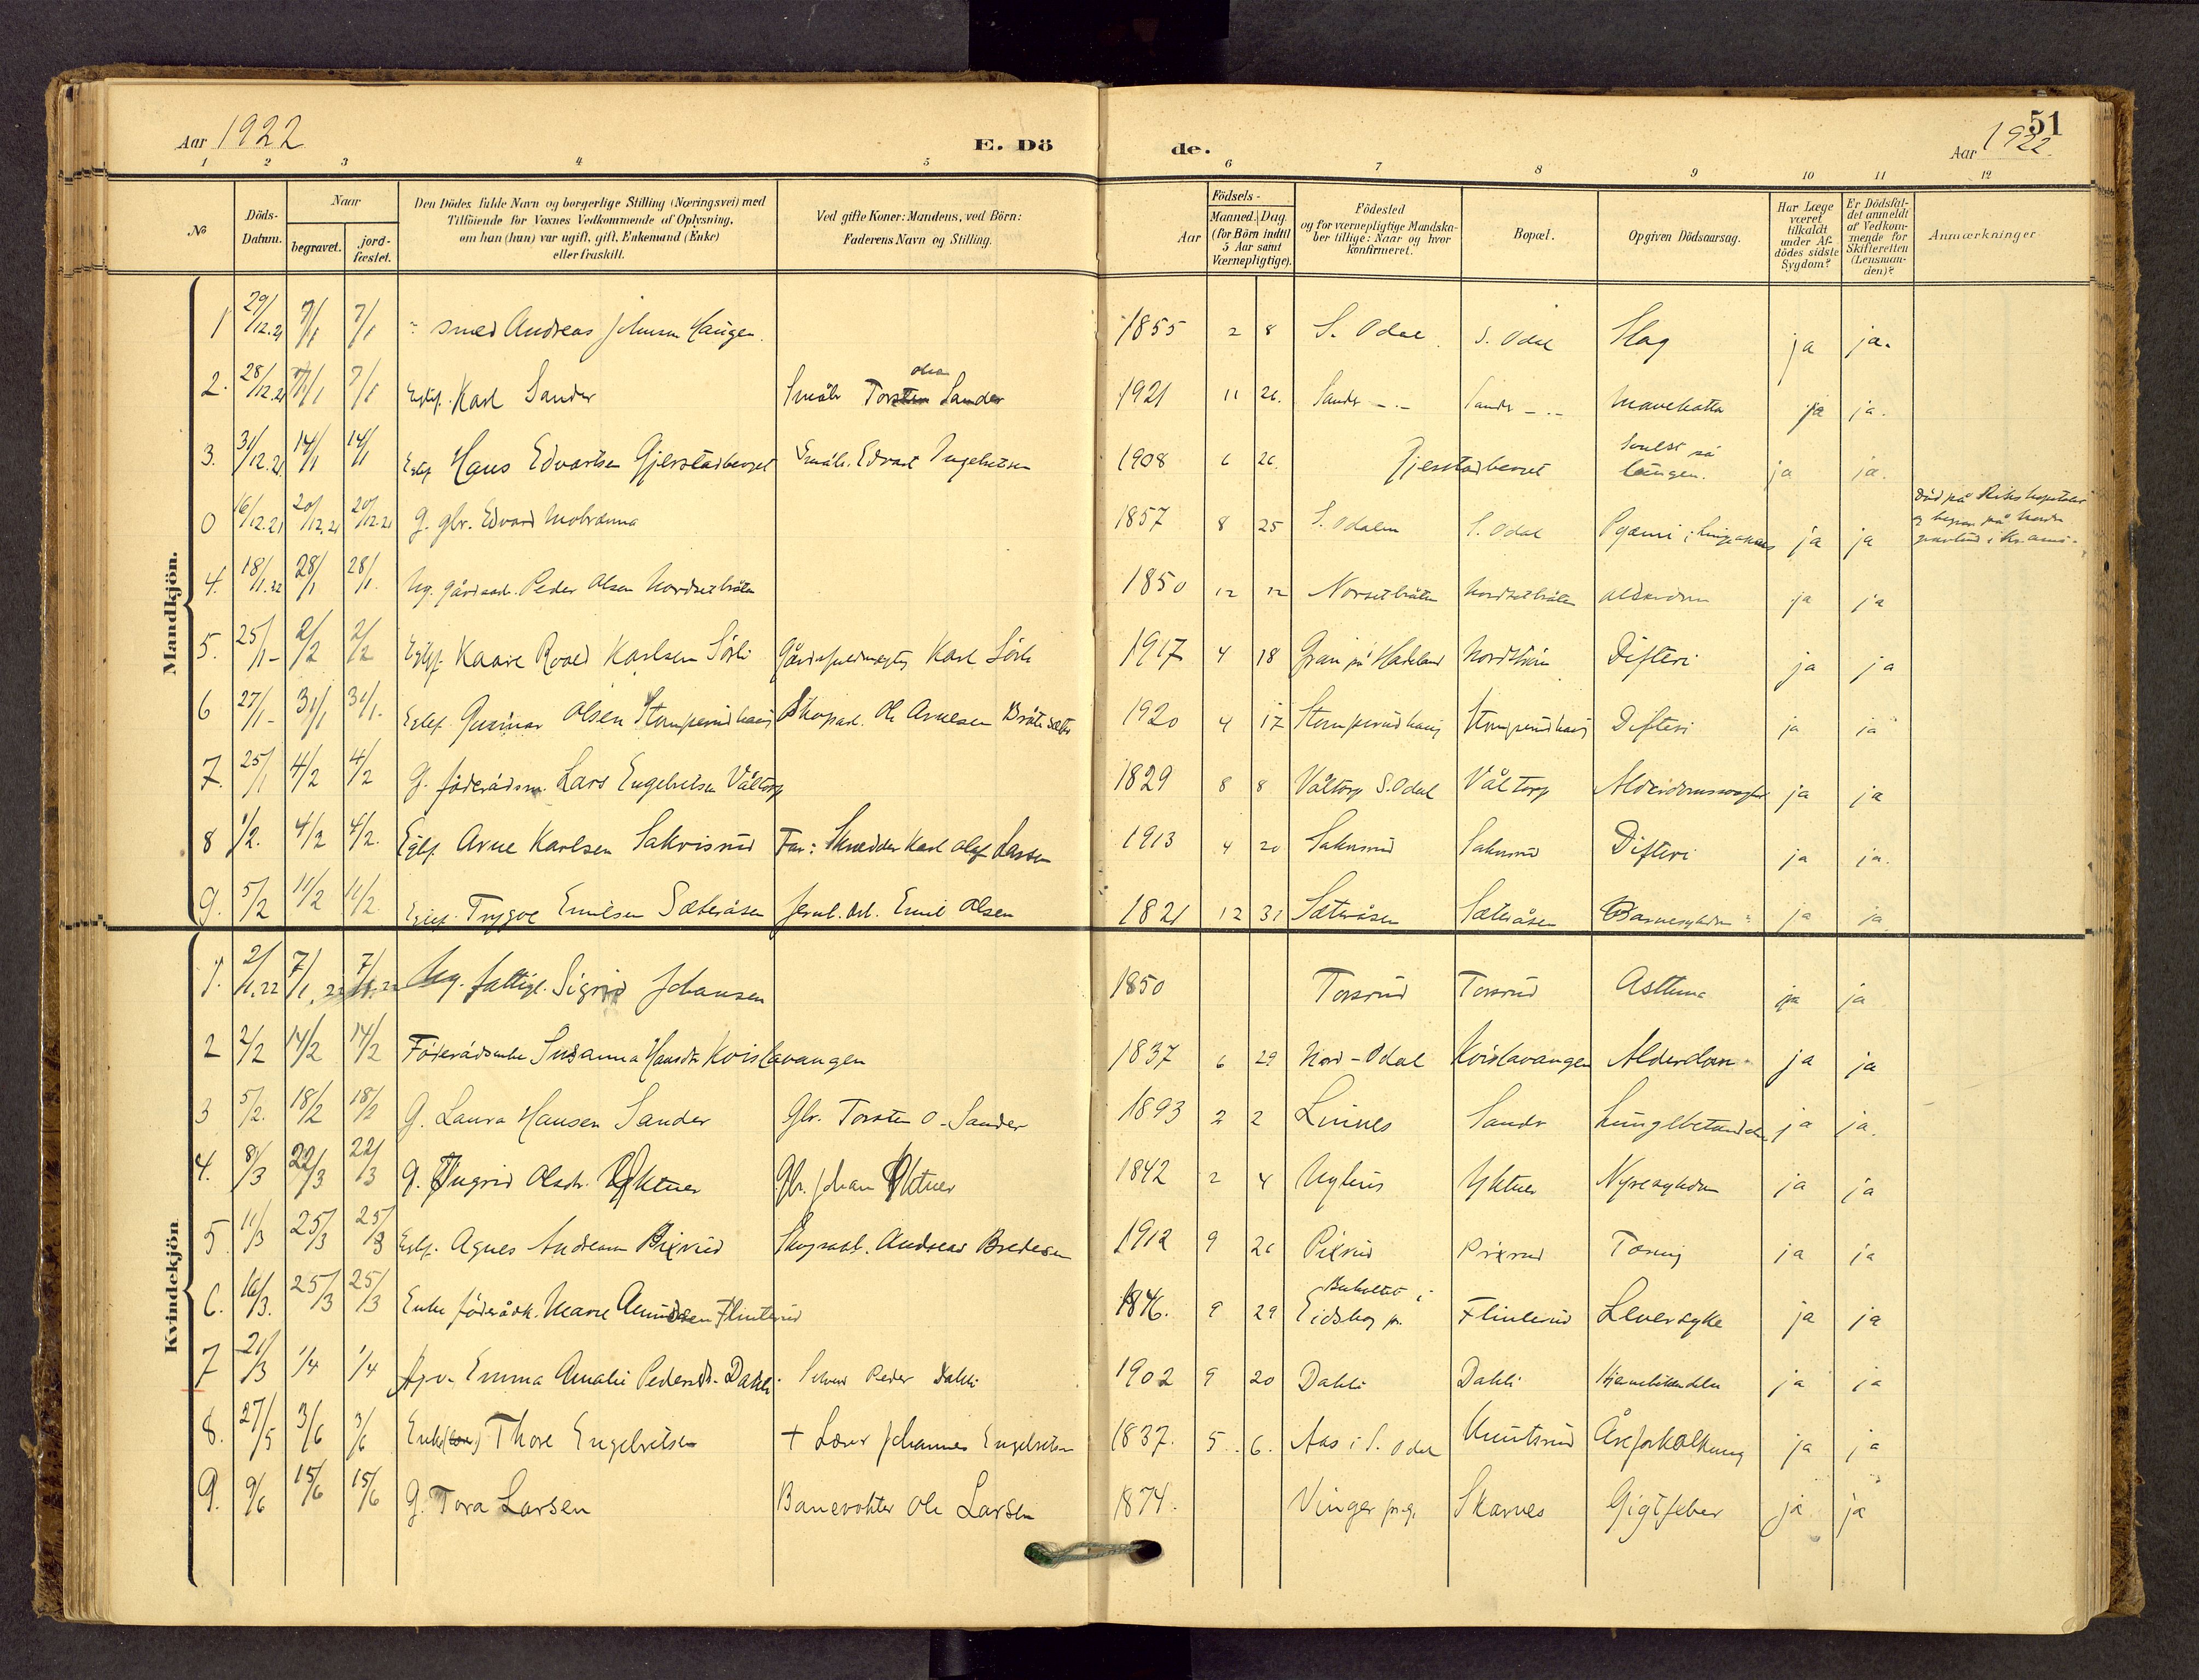 51
Aar 1922
E. Dö
de.
Aar 1922.
1 2 3 4 5 6 7 8 9 10 11 12
No
Döds-
Datum.
Naar
begravet.
jord-
fæstet.
Den Dödes fulde Navn og borgerlige Stilling (Næringsvei) med
Tilföiende for Voxnes Vedkommende af Oplysning,
om han (hun) var ugift, gift, Enkemand (Enke)
eller fraskilt.
Ved gifte Koner: Mandens, ved Börn:
Faderens Navn og Stilling.
Aar
Födsels-
Maaned. Dag
(for Börn indtil
5 Aar samt
Værnepligtige).
Födested
og for værnepligtige Mandska-
ber tillige: Naar og hvor
konfirmeret.
Bopæl.
Opgiven Dödsaarsag.
Har Læge
været
tilkaldt
under Af-
dödes sidste
Sygdom?
Er Dödsfal-
det anmeldt
af Vedkom-
mende for
Skifteretten
(Lensman-
den)?
Anmærkninger
Mandkjön.
1 29/12.21 7/1 7/1 smed Andreas Johnsen Haugen. 1855 2 8 S. Odal S. Odal Slag ja ja.
2. 28/12.21 7/1 7/1 Egtef. Karl Sander Småbr Torsten Sander 1921 11 26. Sander Sander Mavekatar ja ja.
3. 31/12.21 14/1 14/1 Egtef Hans Edvartsen Gjerstadberget Småbr. Edvart Ingebretsen 1908 6 26. Gjerstadberget Svulst på lungen. ja ja.
0 16/12.21 20/12.21 20/12.21 G. gbr. Edvard Mobrænna 1857 8 25 S. Odalen S. Odal Pyæmi i ja ja Död på Rikshospitalet
4. 18/1.22 28/1 28/1. Ug. gårdarb. Peder Olsen Nordsetbråten 1850 12 12 Norsetbråten Nordsetbråten Alderdom ja ja
5. 25/1- 2/2 2/2 Egtef. Kaare Roald Karlsen Sörli Gårdsfuldmægtig Karl Sörli 1917 4 18 Gran på Hadeland Nordström Difteri ja ja
6 27/1- 31/1 31/1. Egtef. Gunnar Olsen Stomperudhaug Skogarb. Ole Arnesen Bråtesæter 1920 4 17 Stomperudhaug Stomperudhaug Difteri ja ja
7. 25/1 4/2 4/2 G. föderådsm. Lars Engebretsen Våltorp 1829 8 8 Våltorp S. Odal Våltorp Alderdomssvaghet ja ja
8 1/2. 4/2 4/2. Egtf. Arne Karlsen Sakrisrud Far: Skrædder Karl Olaf Larsen 1913 4 20 Sakrisrud Sakrisrud Difteri ja ja.
9. 5/2 11/2 11/2. Egtef. Trygve Emilsen Sæteråsen Jernb. Arb. Emil Olsen 1821 12 31 Sæteråsen Sæteråsen Barnesykdom ja ja.
Kvindekjön
1. 2/1.22 7/1.22 7/1.22 Ug. fattigl. Sigrid Johansen 1850 Torsrud Torsrud Asthma ja ja
2 2/2 14/2 14/2 Föderådsenke Susanna Hansdtr Kvislavangen 1837 6 29 Nord-Odal Kvislavangen Alderdom ja ja
3 5/2. 18/2 18/2 G. Laura Hansen Sander Gbr. Torsten O. Sander 1893 2 2 Linnes Sander Lungebetændelse ja ja.
4. 8/3 22/3 22/3 G. Ingrid Olsdtr. Oktner Gbr. Johan Oktner 1842 2 4 Ugleus Oktner Nyresykdom ja ja
5. 11/3 25/3 25/3 Egtf. Agnes Andreasen Pixrud Skogsarb. Andreas Bredesen 1912 9 26 Pixrud Pixrud Tæring ja ja
6. 16/3. 25/3 25/3 Enke föderådk. Marie Amundsen Flinterud 1846. 9 29 Eidskog p. Flinterud Leversyke ja ja
7 21/3 1/4 1/4 Emma Amalie Pedersdtr. Dahli Peder Dahli 1902 9 20 Dahli Dahli ja ja
8. 27/5 3/6 3/6 Enke Thore Engebretsen + Lærer Johannes Engebretsen 1837. 5. 6. Aas i S. Odal Knutsrud Åreforkalkning ja ja
9. 9/6 15/6 15/6 G. Tora Larsen Banevokter Ole Larsen 1874. Vinger pr.g. Skarnes Gigtfeber ja ja